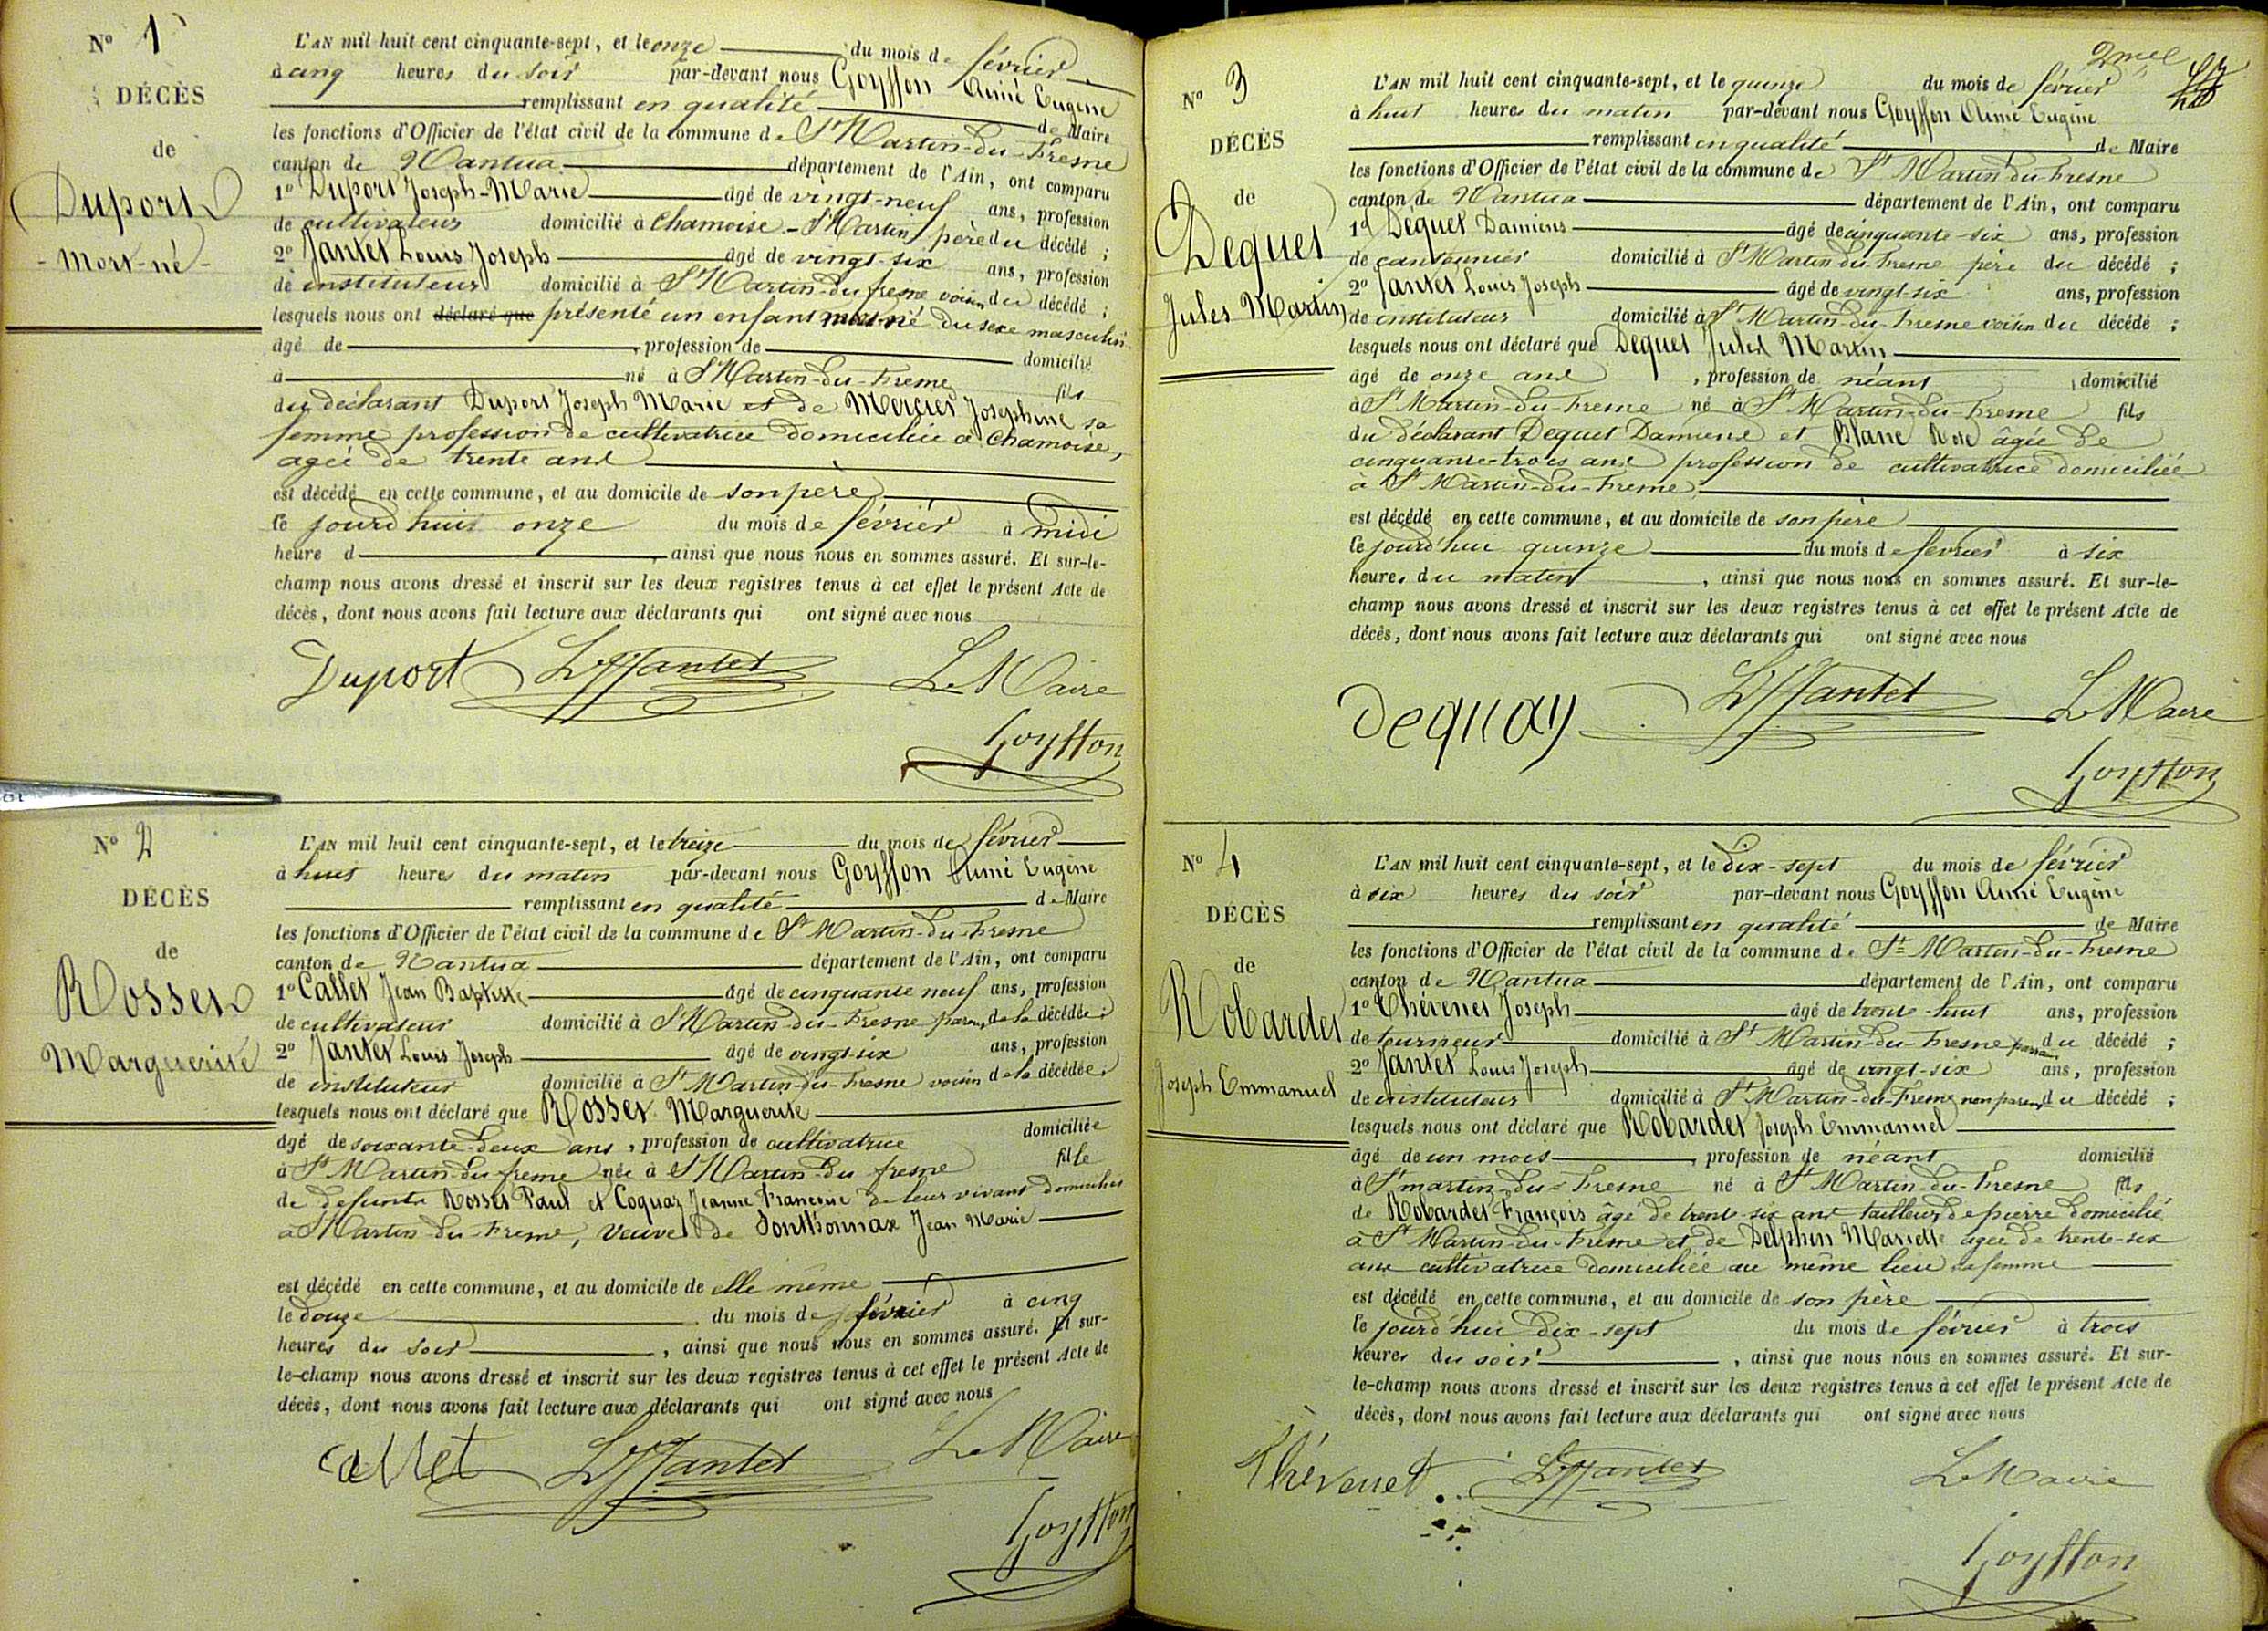 N° 1
DÉCÈS
de
Duport
- Mort-né -
L'AN mil huit cent cinquante-sept, et le onze du mois de février
à cinq heures du soir par-devant nous Goyffon Aimé Eugène
remplissant en qualité de Maire
les fonctions d'Officier de l'état civil de la commune de St Martin-du-Fresne
canton de Nantua département de l'Ain, ont comparu
1° Duport Joseph-Marie âgé de vingt-neuf ans, profession
de cultivateur domicilié à Chamoise - St Martin père du décédé ;
2° Jantet Louis Joseph âgé de vingt-six ans, profession
de instituteur domicilié à St Martin-du-fresne voisin du décédé ;
lesquels nous ont déclaré que présenté un enfant mort-né du sexe masculin
âgé de , profession de domicilié
à né à St Martin-du-Fresne fils
du déclarant Duport Joseph Marie et de Mercier Josephine sa
femme profession de cultivatrice domiciliée à Chamoise,
agée de trente ans
est décédé en cette commune, et au domicile de son père
le jourd'hui onze du mois de février à midi
heure d , ainsi que nous nous en sommes assuré. Et sur-le-
champ nous avons dressé et inscrit sur les deux registres tenus à cet effet le présent Acte de
décès, dont nous avons fait lecture aux déclarants qui ont signé avec nous
Duport LJJantet Le Maire
Goyffon
N° 2
DÉCÈS
de
Rosset
Marguerite
L'AN mil huit cent cinquante-sept, et le treize du mois de février
à huit heures du matin par-devant nous Goyffon Aimé Eugène
remplissant en qualité de Maire
les fonctions d'Officier de l'état civil de la commune de St Martin-du-Fresne
canton de Nantua département de l'Ain, ont comparu
1° Callet Jean Baptiste âgé de cinquante neuf ans, profession
de cultivateur domicilié à St Martin-du-Fresne parent de la décédée ;
2° Jantet Louis Joseph âgé de vingt-six ans, profession
de instituteur domicilié à St Martin-du-Fresne voisin de la décédée ;
lesquels nous ont déclaré que Rosset Marguerite
âgé de soixante-deux ans, profession de cultivatrice domiciliée
à St Martin-du-fresne née à St Martin-du-fresne fille
de defunts Rosset Paul et Coquaz Jeanne Françoise de leur vivant domiciliés
à St Martin-du-Fresne, Veuve de Jean Marie
est décédé en cette commune, et au domicile de elle même
le douze du mois de février à cinq
heures du soir , ainsi que nous nous en sommes assuré. Et sur-
le-champ nous avons dressé et inscrit sur les deux registres tenus à cet effet le présent Acte de
décès, dont nous avons fait lecture aux déclarants qui ont signé avec nous
Callet LJJantet Le Maire
Goyffon
2me
N° 3
DÉCÈS
de
Dequet
Jules Martin
L'AN mil huit cent cinquante-sept, et le quinze du mois de février
à huit heures du matin par-devant nous Goyffon Aimé Eugène
remplissant en qualité de Maire
les fonctions d'Officier de l'état civil de la commune de St Martin-du-Fresne
canton de Nantua département de l'Ain, ont comparu
1° Dequet Damiens âgé de cinquante-six ans, profession
de cantonnier domicilié à St Martin-du-Fresne père du décédé ;
2° Jantet Louis Joseph âgé de vingt-six ans, profession
de instituteur domicilié à St Martin-du-Fresne voisin du décédé ;
lesquels nous ont déclaré que Dequet Jules Martin
âgé de onze ans , profession de néant , domicilié
à St Martin-du-Fresne né à St Martin-du-Fresne fils
du déclarant Dequet Damiens et Blanc Rose âgée de
cinquante-trois ans profession de cultivatrice domiciliée
à St Martin-du-Fresne
est décédé en cette commune, et au domicile de son père
le jourd'hui quinze du mois de fevrier à six
heures du matin , ainsi que nous nous en sommes assuré. Et sur-le-
champ nous avons dressé et inscrit sur les deux registres tenus à cet effet le présent Acte de
décès, dont nous avons fait lecture aux déclarants qui ont signé avec nous
Dequay LJJantet Le Maire
Goyffon
N° 4
DÉCÈS
de
Robardet
Joseph Emmanuel
L'AN mil huit cent cinquante-sept, et le dix-sept du mois de février
à six heures du soir par-devant nous Goyffon Aimé Eugène
remplissant en qualité de Maire
les fonctions d'Officier de l'état civil de la commune de St Martin-du-Fresne
canton de Nantua département de l'Ain, ont comparu
1° Thévenet Joseph âgé de trente-huit ans, profession
de tourneur domicilié à St Martin-du-Fresne parrain du décédé ;
2° Jantet Louis Joseph âgé de vingt-six ans, profession
de instituteur domicilié à St Martin-du-Fresne non parent du décédé ;
lesquels nous ont déclaré que Robardet Joseph Emmanuel
âgé de un mois , profession de néant domicilié
à St martin-du-Fresne né à St Martin-du-Fresne fils
de Robardet François âgé de trente-six ans tailleur de pierre domicilié
à St Martin-du-Fresne et de Delphin Mariette agée de trente-six
ans cultivatrice domiciliée au même lieu sa femme
est décédé en cette commune, et au domicile de son père
le jourd'hui dix-sept du mois de février à trois
heures du soir , ainsi que nous nous en sommes assuré. Et sur-
le-champ nous avons dressé et inscrit sur les deux registres tenus à cet effet le présent Acte de
décès, dont nous avons fait lecture aux déclarants qui ont signé avec nous
Thévenet LJJantet Le Maire
Goyffon